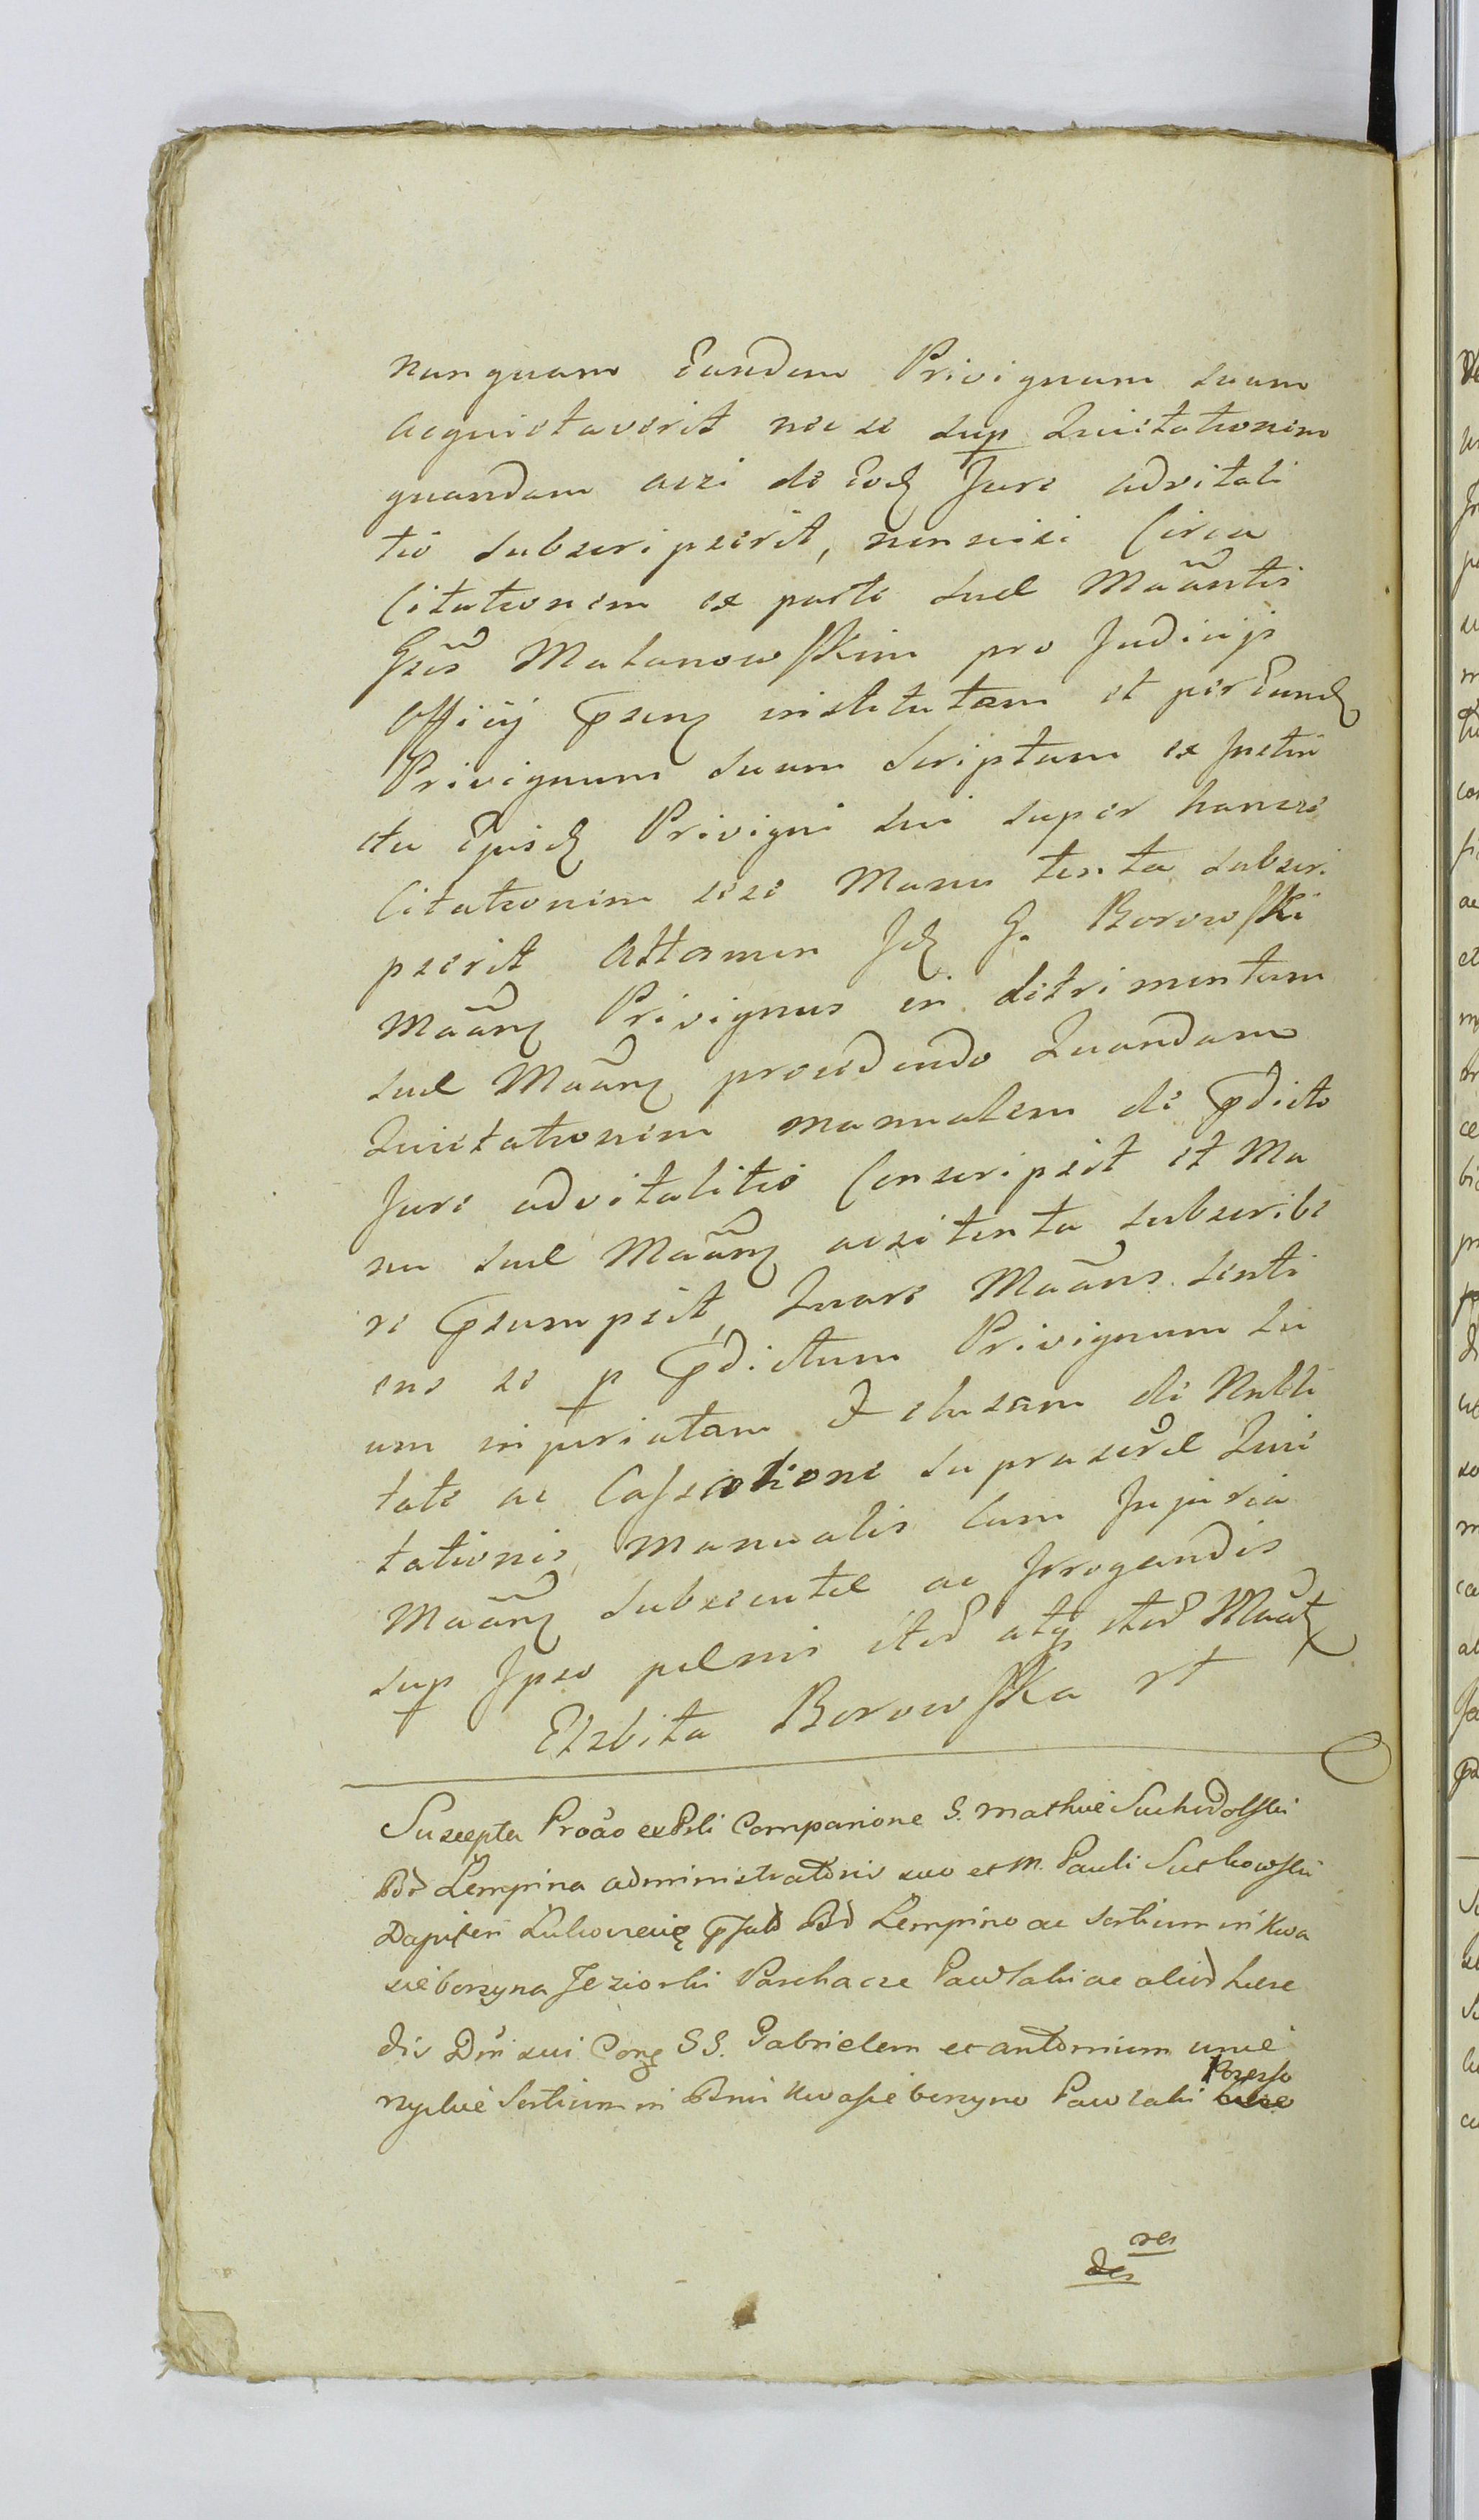 nunquam Eundem Privignum suum
acquietaverit nec se sup Quietationem
quandam acsi de Eod Jure advitali
tio subscripserit, nunsuisi Circa
Citationem ex parte suae Maãntis
Gsis Malanowskim pro Judicijs
Officij pseng institutam et per Eund
Privignum suum scriptam ex Instin
ctu Ejusd Privigni sui super hancce
Citationem sese Manu tenta subscri
pserit attamen Jd G. Borowski
Maãng Privignus in detrimentum
suae Maãng procedendo Quandam
Quietationem manualem de pdicto
Jure advitalitio Conscripsit et Ma
nu suae Maãng acsi tenta subscribe
re psumpsit, Quare Maãns senti
ens se p pdictum Privignum su
um injuriatam & elusam de Nulli
tate ac Cassatione suprascrae Quie
tationis Manualis cum Injuria
Maãng subsecutae ac Irrogandis
sup Ipso paenis iterd atq iterd Maãt
Elzbita Borowska rt
Suscepta Proão ex Pti Comparione G. Mathei Suchodolski
Bd Lempina administratoris suo et M. Pauli Suchowski
Dapiferi Lukoviens psald Bd Lempino ac Sortium in Kwa
sieborzyna Jeziorki Parchacze Pawlaki ac aliord haere
dis Dni sui Cong GG. Gabrielem et antonium
Sortium in Bnis Kwasieborzyno Pawlaki Possesso
haere
res
des